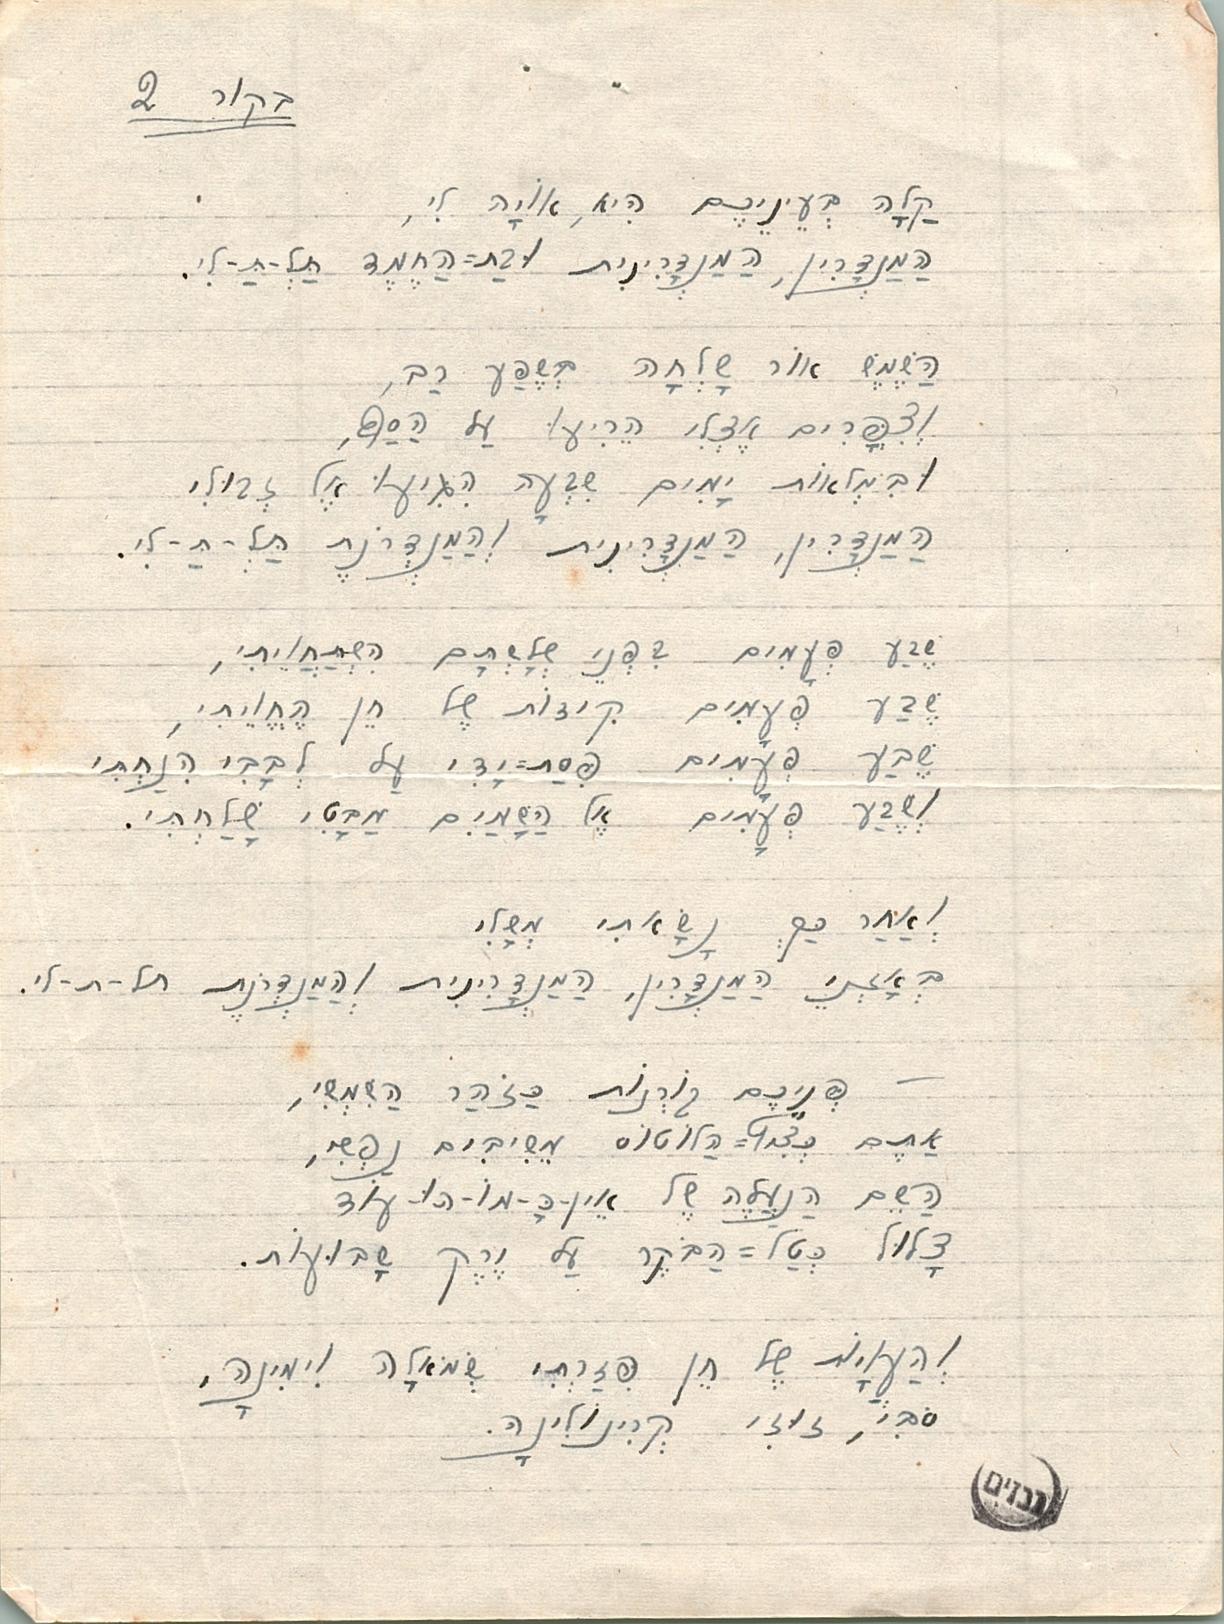 בקור 2
קַלָּה בְּעֵינֵיכֶם הִיא, אוֹיָה לִי,
הַמַּנְדָּרִין, הַמַּנְדָּרִינִית וּבַת=הַחֶמֶד תַּלְ-תַּ-לִי.
הַשֶּׁמֶשׁ אוֹר שָׁלְחָה בְּשֶׁפַע רַב,
וְצִפֳּרִים אֶצְלִי הֵרִיעוּ עַל הַסַּף,
וּבִמְלֹאות יָמִים שִׁבְעָה הִגִּיעוּ אֶל זְבוּלִי
הַמַּנְדָּרִין, הַמַּנְדָּרִינִית וְהַמַּנְדְּרֹנֶת תַּלְ-תַּ-לִי.
שֶׁבַע פְּעָמִים בִּפְנֵי שְׁלָשְׁתָּם הִשְׁתַּחֲוֵיתִי,
שֶׁבַע פְּעָמִים קִידוֹת שֶׁל חֵן הֶחֱוֵיתִי,
שֶׁבַע פְּעָמִים פִּסַּת=יָדִי עַל לְבָבִי הִנַּחְתִּי
וְשֶׁבַע פְּעָמִים אֶל הַשָּׁמַיִם מַבָּטִי שָׁלַחְתִּי.
וְאַחַר כַּךְ נָשָׂאתִי מְשָׁלִי
בְּאָזְנֵי הַמַּנְדָּרִין, הַמַּנְדָּרִינִית וְהַמַּנְדְּרֹנֶת תל-ת-לי.
— פְּנֵיכֶם קוֹרְנוֹת כַּזֹּהַר הַשִּׁמְשִׁי,
אַתֶּם כְּצִיץ=הַלּוֹטוֹס מְשִׁיבִים נַפְשִׁי,
הַשֵּׁם הַנַּעֲלֶה שֶׁל אֵין-כָּ-מוֹ-הוּ-עוֹד
צָלוּל כְּטַל=הַבֹּקֶר עַל וֶרֶק שָׁבוּעוֹת.
וְהַעֲוָיֹת שֶׁל חֵן פִּזַּרְתִּי שְׂמֹאלָה וִימִינָה,
סֹבִּי, זוּזִי קְרִינוֹלִינָה.
גנזים